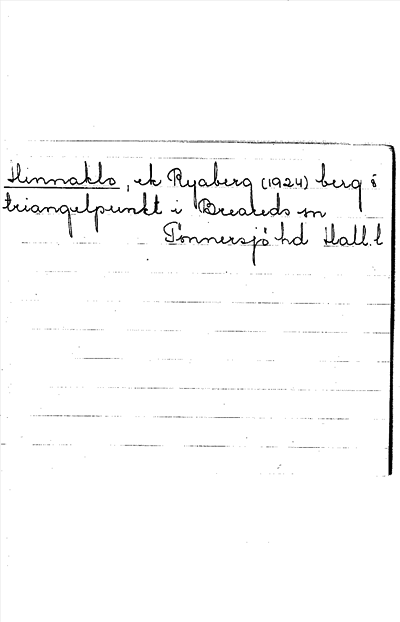 Hinnaklo, ek Ryaberg (1924) berg o
triangelpunkt i Breareds sn
Tönnersjö hd Hall. l